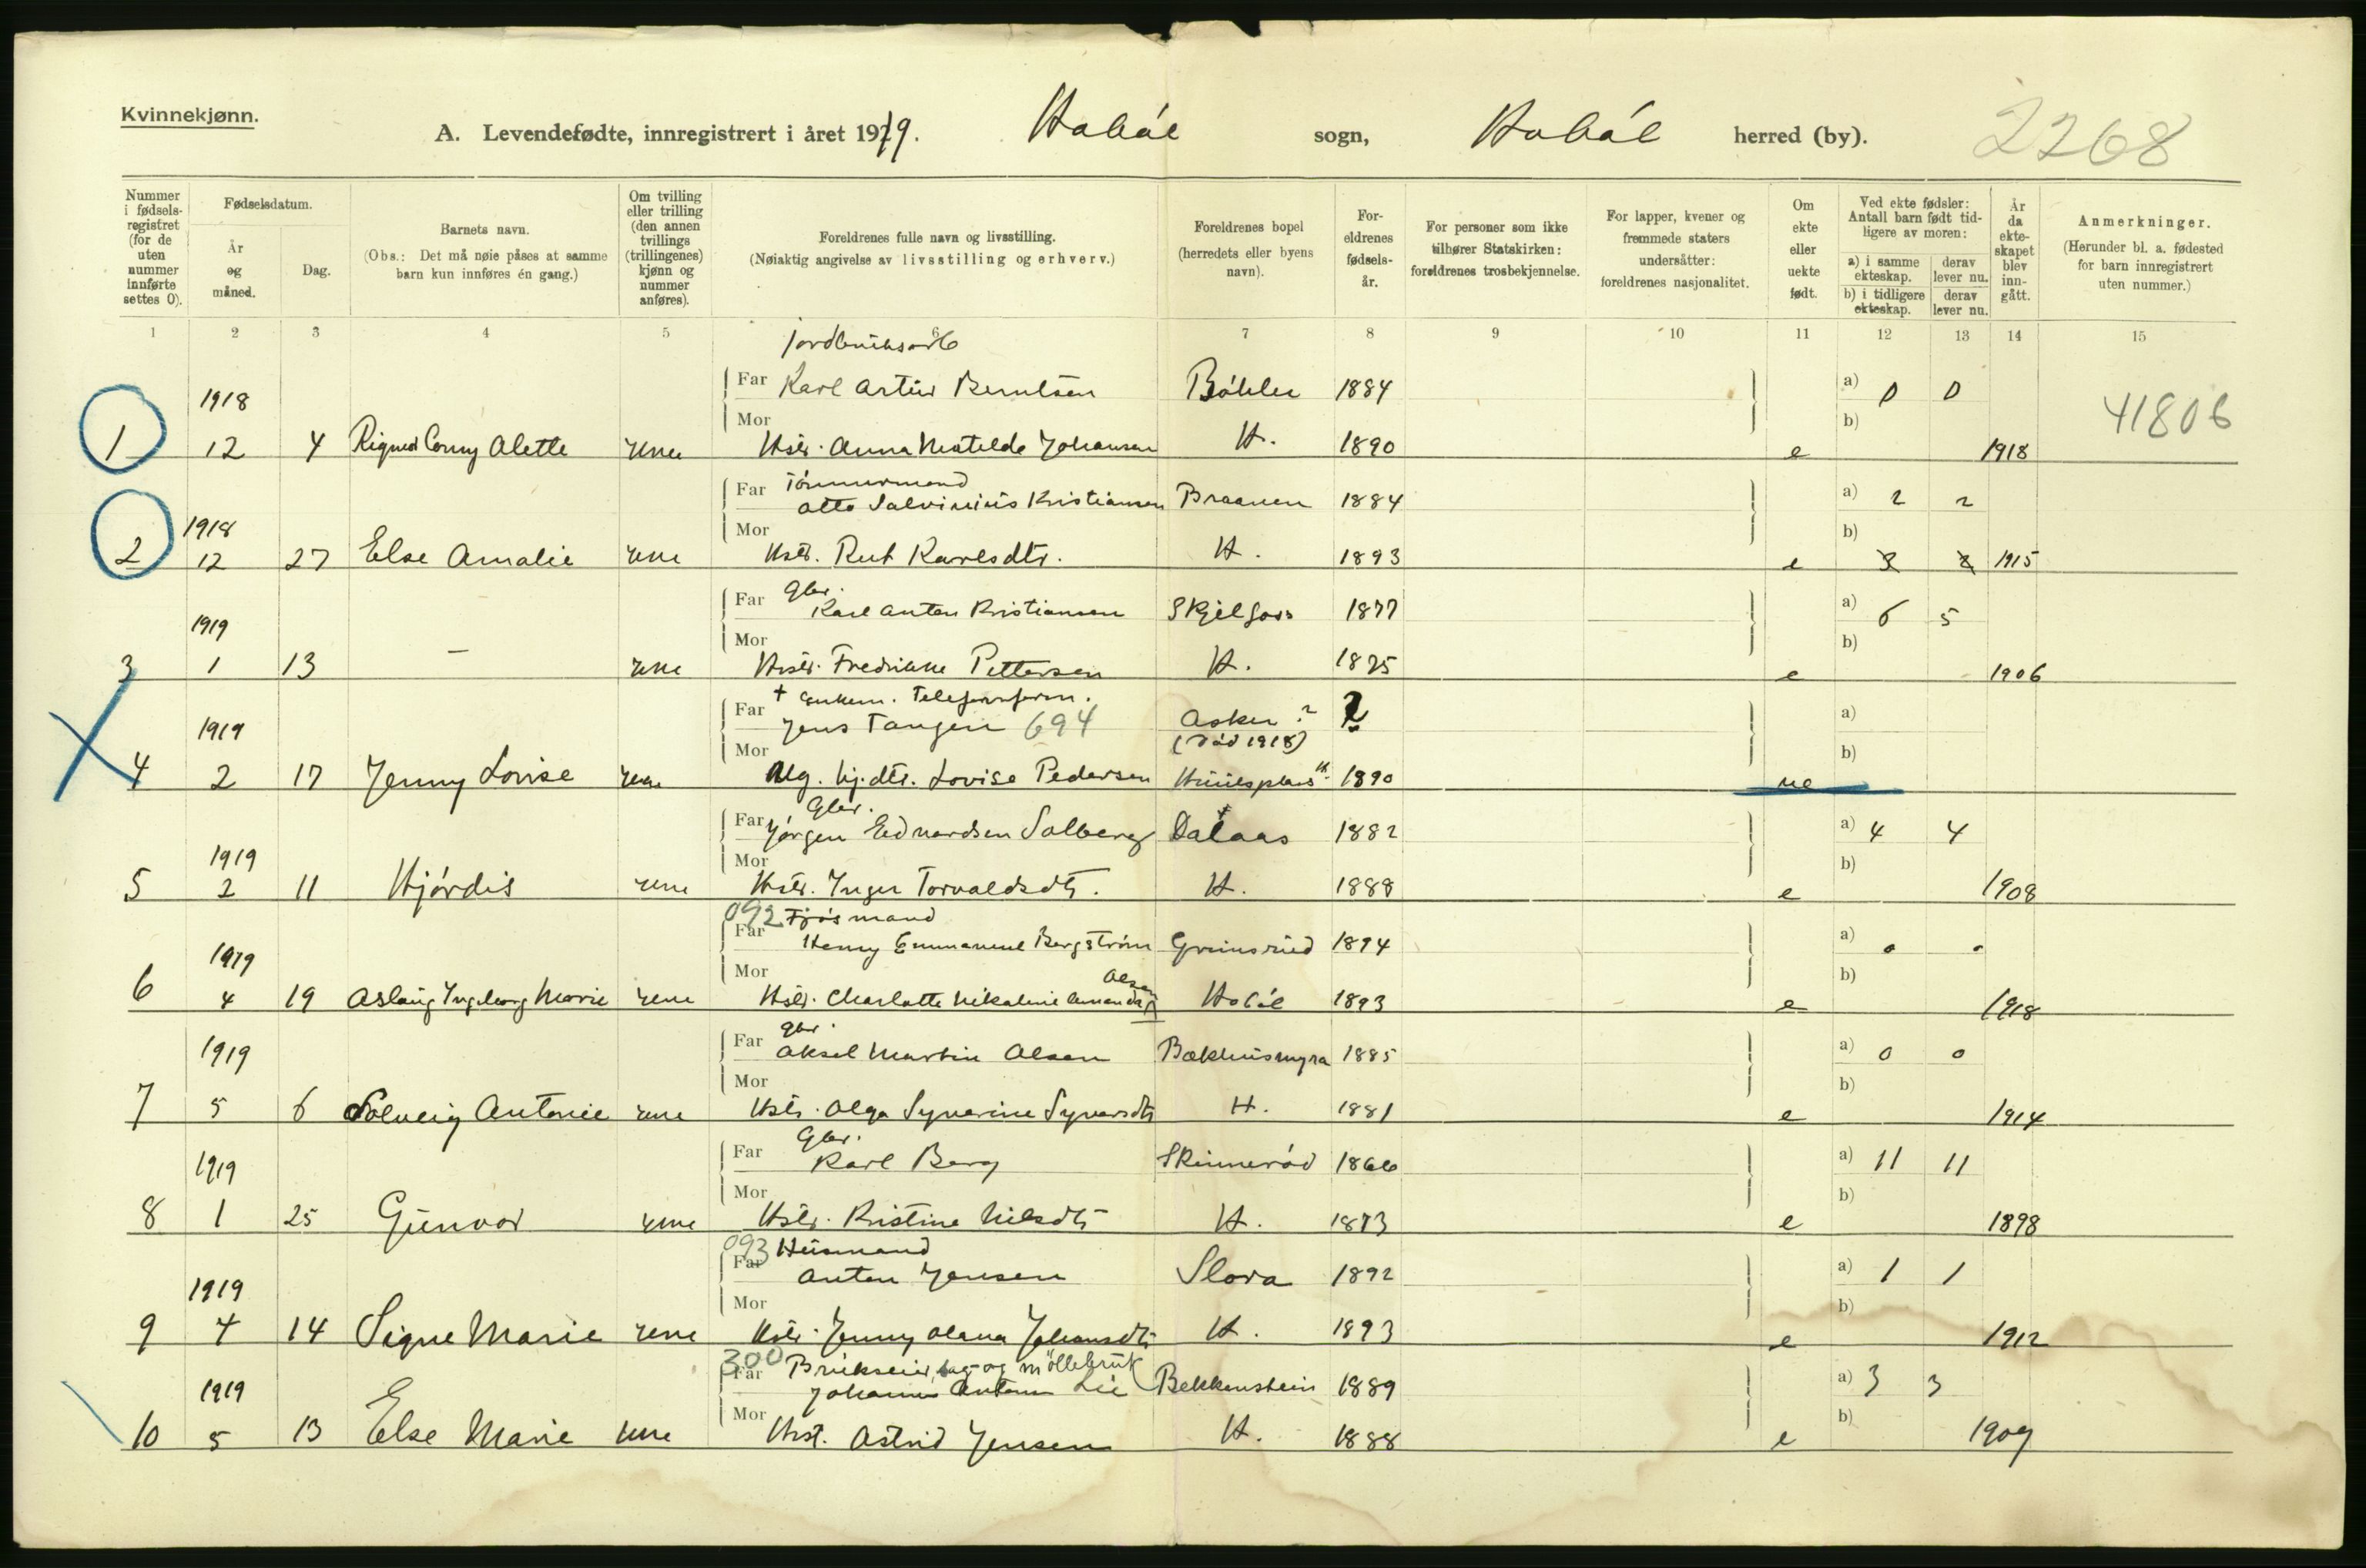 Kvinnekjønn.
A. Levendefødte, innregistrert i året 1919. Hobøl sogn, Hobøl herred (by). 2268
Nummer i fødsels-registret (for de uten nummer innførte settes 0).
Fødselsdatum.
År og måned.
Dag.
Barnets navn.
(Obs.: Det må nøie påses at samme barn kun innføres én gang.)
Om tvilling eller trilling (den annen tvillings (trillingenes) kjønn og nummer anføres).
Foreldrenes fulle navn og livsstilling.
(Nøiaktig angivelse av livsstilling og erhverv.)
Foreldrenes bopel (herredets eller byens navn).
For-eldrenes fødsels-år.
For personer som ikke tilhører Statskirken: foreldrenes trosbekjennelse.
For lapper, kvener og fremmede staters undersåtter: foreldrenes nasjonalitet.
Om ekte eller uekte født.
Ved ekte fødsler: Antall barn født tid-ligere av moren:
a) i samme ekteskap. derav lever nu.
b) i tidligere ekteskap. derav lever nu.
År da ekte-skapet blev inn-gått.
Anmerkninger.
(Herunder bl. a. fødested for barn innregistrert uten nummer.)
1 2 3 4 5 6 7 8 9 10 11 12 13 14 15
jordbruksarb
1918 Far Karl Artur Berntsen Bøhler 1884 a) 0 0 41806
Mor b)
1 12 4 Conny Alette Hstr. Anna Matilde Johansen H. 1890 e 1918
Far Tømmermand
1918 Otto Salvinius Kristiansen Braanen 1884 a) 2 2
Mor b)
2 12 27 Else Amalie Hstr. Rut Karlsdtr. H. 1893 e 1915
Gbr.
1919 Far Karl Anton Kristiansen Skjelfoss 1877 a) 6 5
Mor b)
3 1 13 — Hstr. Fredrikke Pettersen H. 1875 e 1906
† Enkem. Telefonform.
1919 Far Jens Tangen 694 Asker ? ? a)
Mor (død 1918) b)
4 2 17 Jenny Lovise Ug. hj.dtr. Lovise Pedersen H. 1890 ue
Gbr.
1919 Far Jørgen Edvardsen Solberg Dalaas 1882 a) 4 4
Mor b)
5 2 11 Hjørdis Hstr. Inger Torvaldsdtr. H. 1888 e 1908
092 Fjøsmand
1919 Far Henry Emmanuel Bergstrøm Grimsrud 1894 a) 0 0
Mor Olsen b)
6 4 19 Aslaug Ingeborg Marie Hstr. Charlotte Nikoline Amanda Hobøl 1893 e 1918
Gbr.
1919 Far Aksel Martin Olsen Bækhusmyra 1885 a) 0 0
Mor b)
7 5 6 Solveig Antonie Hstr. Olga Syverine Syversdtr H. 1881 e 1914
Gbr.
1919 Far Karl Berg Skinnerød 1866 a) 11 11
Mor b)
8 1 25 Gunvor Hstr. Kristine Nilsdtr H. 1873 e 1898
093 Husmand
1919 Far Anton Jensen Slora 1892 a) 1 1
Mor b)
9 4 14 Signe Marie Hstr. Jenny Olava Johansdtr H. 1893 e 1912
300 Brukseier, sag- og møllebruk
1919 Far Johannes Anton Lie Bekkenstein 1889 a) 3 3
Mor b)
10 5 13 Else Marie Hstr. Astrid Jensen H. 1888 e 1909